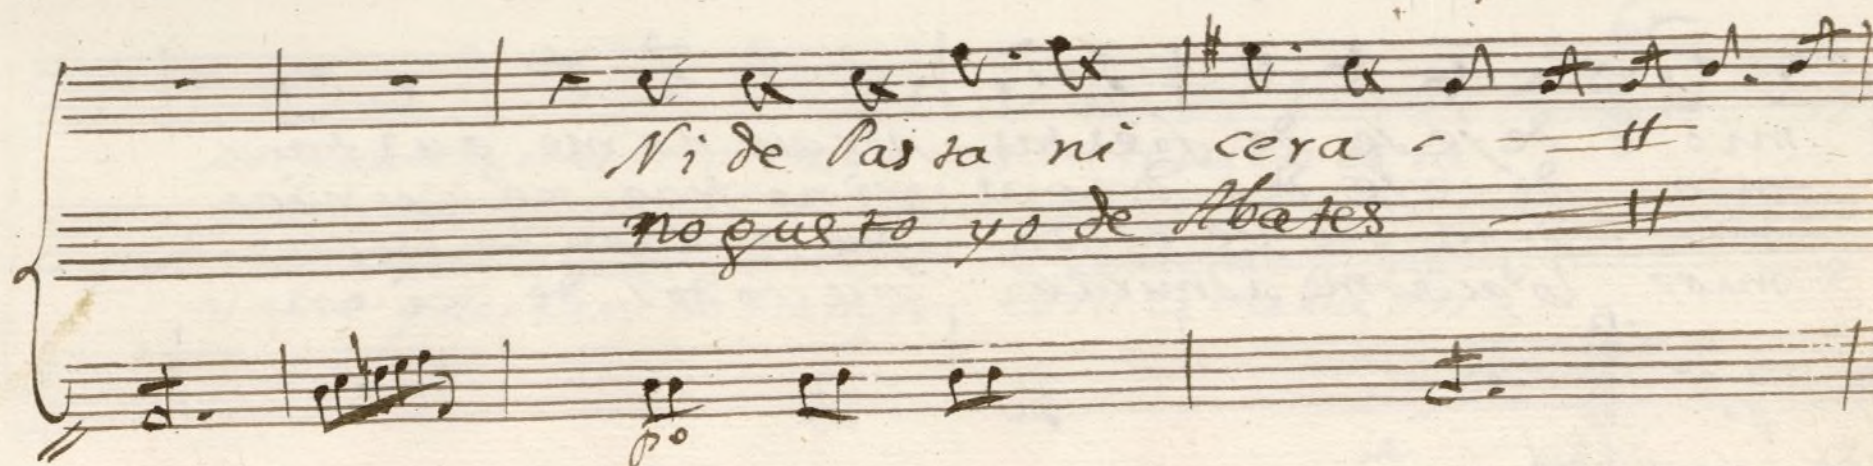 Ni de Pasta ni cera
no gusto yo de Abates
po